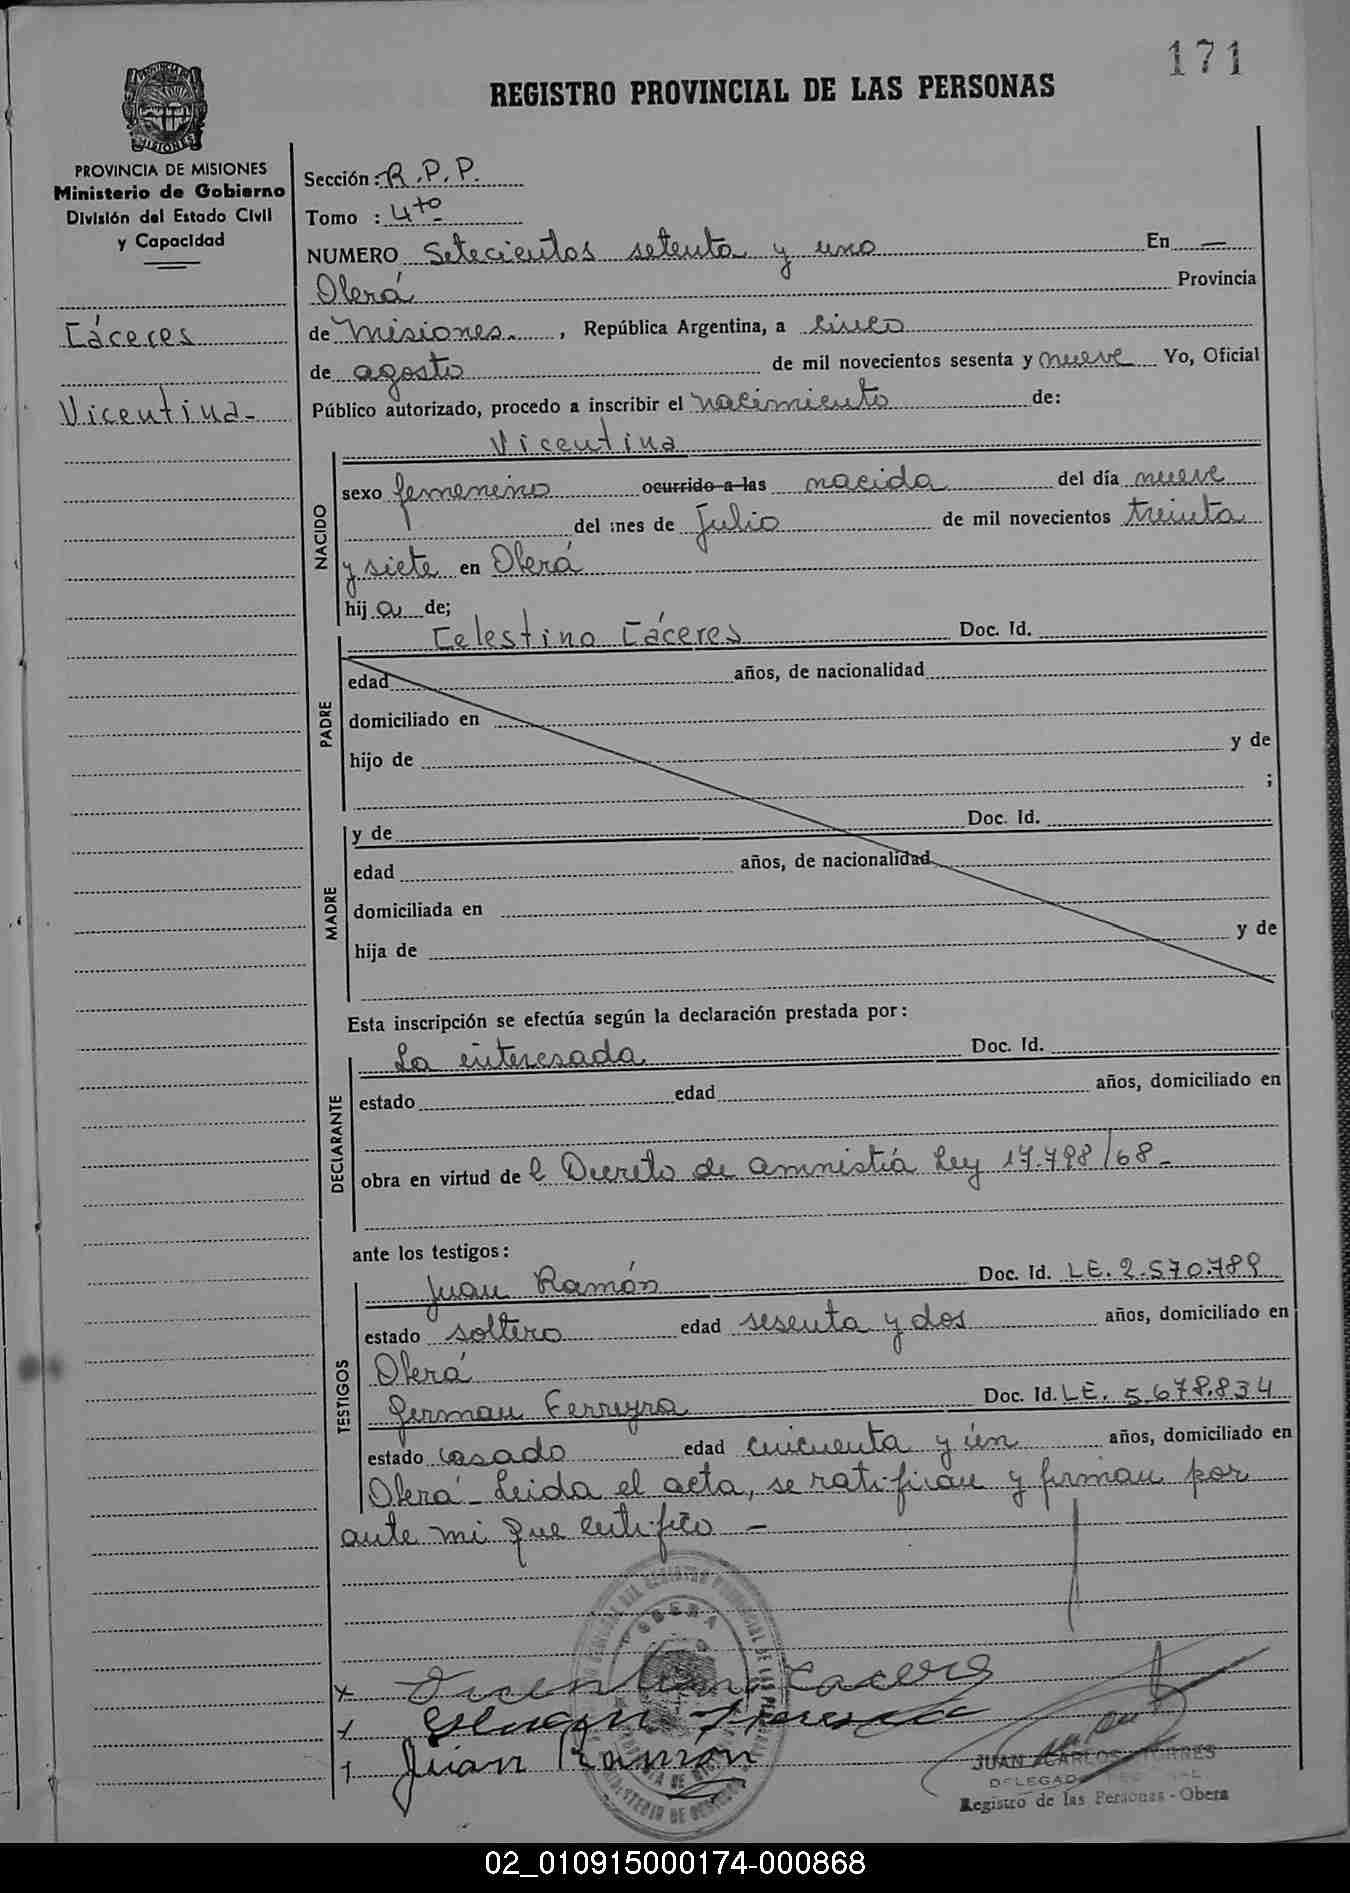 171
REGISTRO PROVINCIAL DE LAS PERSONAS
MISIONES
PROVINCIA DE MISIONES
Ministerio de Gobierno
División del Estado Civil
y Capacidad
Cáceres
Vicentina-
Sección: R.P.P.
Tomo : 4to
NUMERO Setecientos setenta y uno En —
Oberá Provincia
de Misiones. , República Argentina, a cinco
de agosto de mil novecientos sesenta y nueve Yo, Oficial
Público autorizado, procedo a inscribir el nacimiento de:
Vicentina
NACIDO
sexo femenino ocurrido a las nacida del día nueve
del mes de Julio de mil novecientos treinta
y siete en Oberá
hija de;
PADRE
Celestino Cáceres Doc. Id.
edad años, de nacionalidad
domiciliado en
hijo de y de
;
MADRE
y de Doc. Id.
edad años, de nacionalidad
domiciliada en
hija de y de
Esta inscripción se efectúa según la declaración prestada por:
DECLARANTE
La interesada Doc. Id.
estado edad años, domiciliado en
obra en virtud de l Decreto de amnistía Ley 17.798/68-
ante los testigos:
TESTIGOS
Juan Ramón Doc. Id. LE. 2.570.789
estado soltero edad sesenta y dos años, domiciliado en
Oberá
German Ferreyra Doc. Id. LE. 5.678.834
estado casado edad cincuenta y un años, domiciliado en
Oberá - Leida el acta, se ratifican y firman por
ante mi que certifico —
OBERA
x Vicentina Caceres
Juan Ramon
JUAN CARLOS
DELEGADO
Registro de las Personas - Obera
02_010915000174-000868